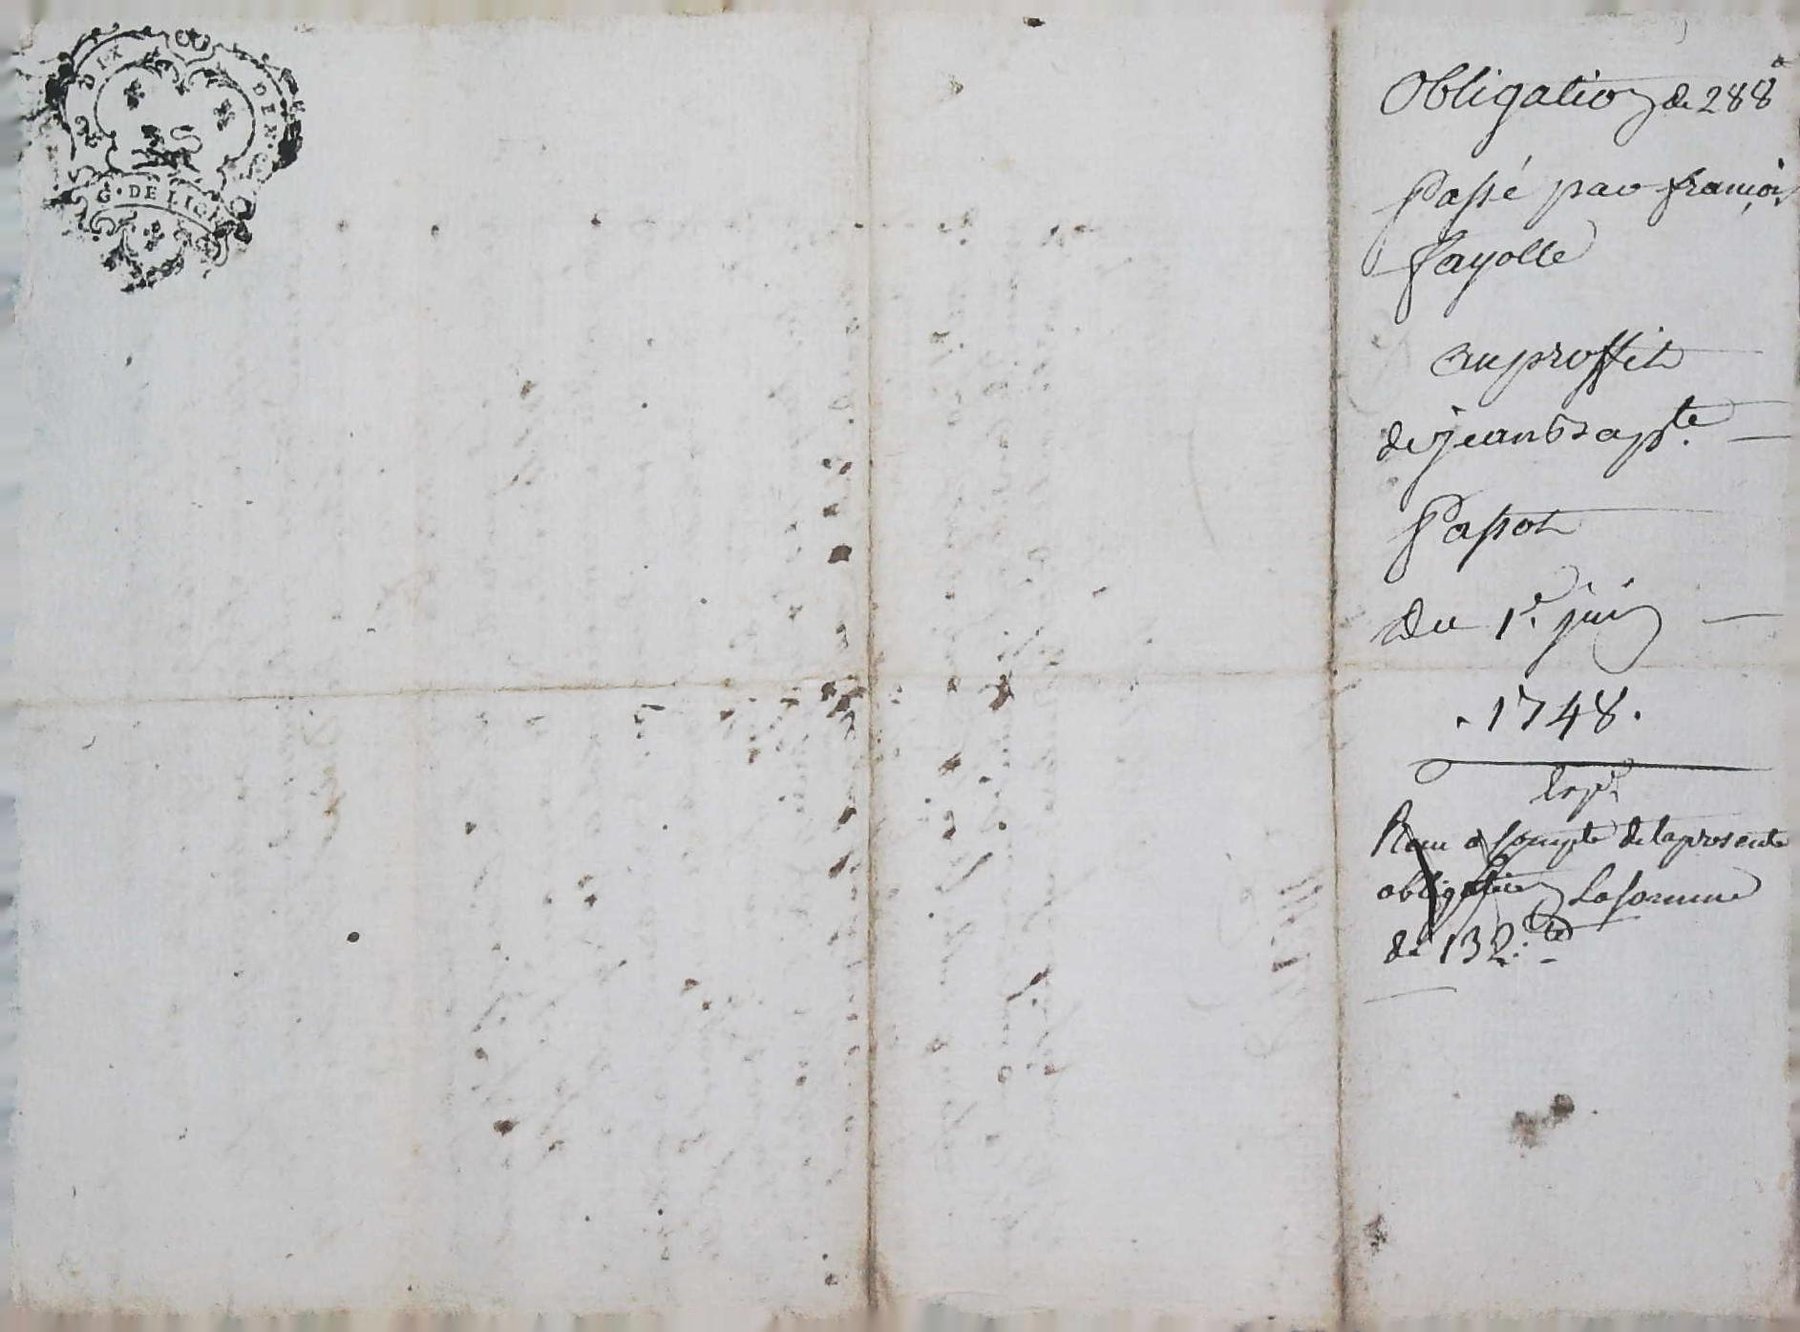 DIX DEN.
G. DE LION
Obligation de 288ᵗ
Passé par françois
fayolle
au proffit
de jean bapᵗᵉ
Passot
du 1ᵉʳ juin
.1748.
Recu a Compte de la presente
obligation La somme
de 132.ᵗ